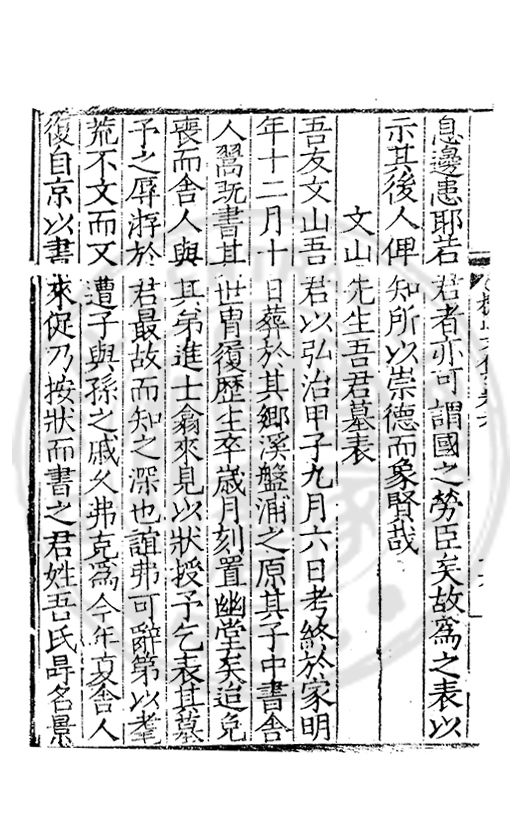 息邊患耶若君者亦可謂國之勞臣矣故爲之表以
示其後人俾知所以崇德而象賢哉
文山先生吾君墓表
吾友文山吾君以弘治甲子九月六日考終於家明
年十二月十日葬於其鄉溪盤浦之原其子中書舍
人翯旣書其世胄履歴生卒歲月刻置幽堂矣迨免
喪而舍人與其弟進士翕來見以狀授予乞表其墓
予之辱游於君最故而知之深也誼弗可辭第以耄
荒不文而又遭子與孫之戚久弗克爲今年夏舍人
復自京以書來促乃按狀而書之君姓吾氏冔名景